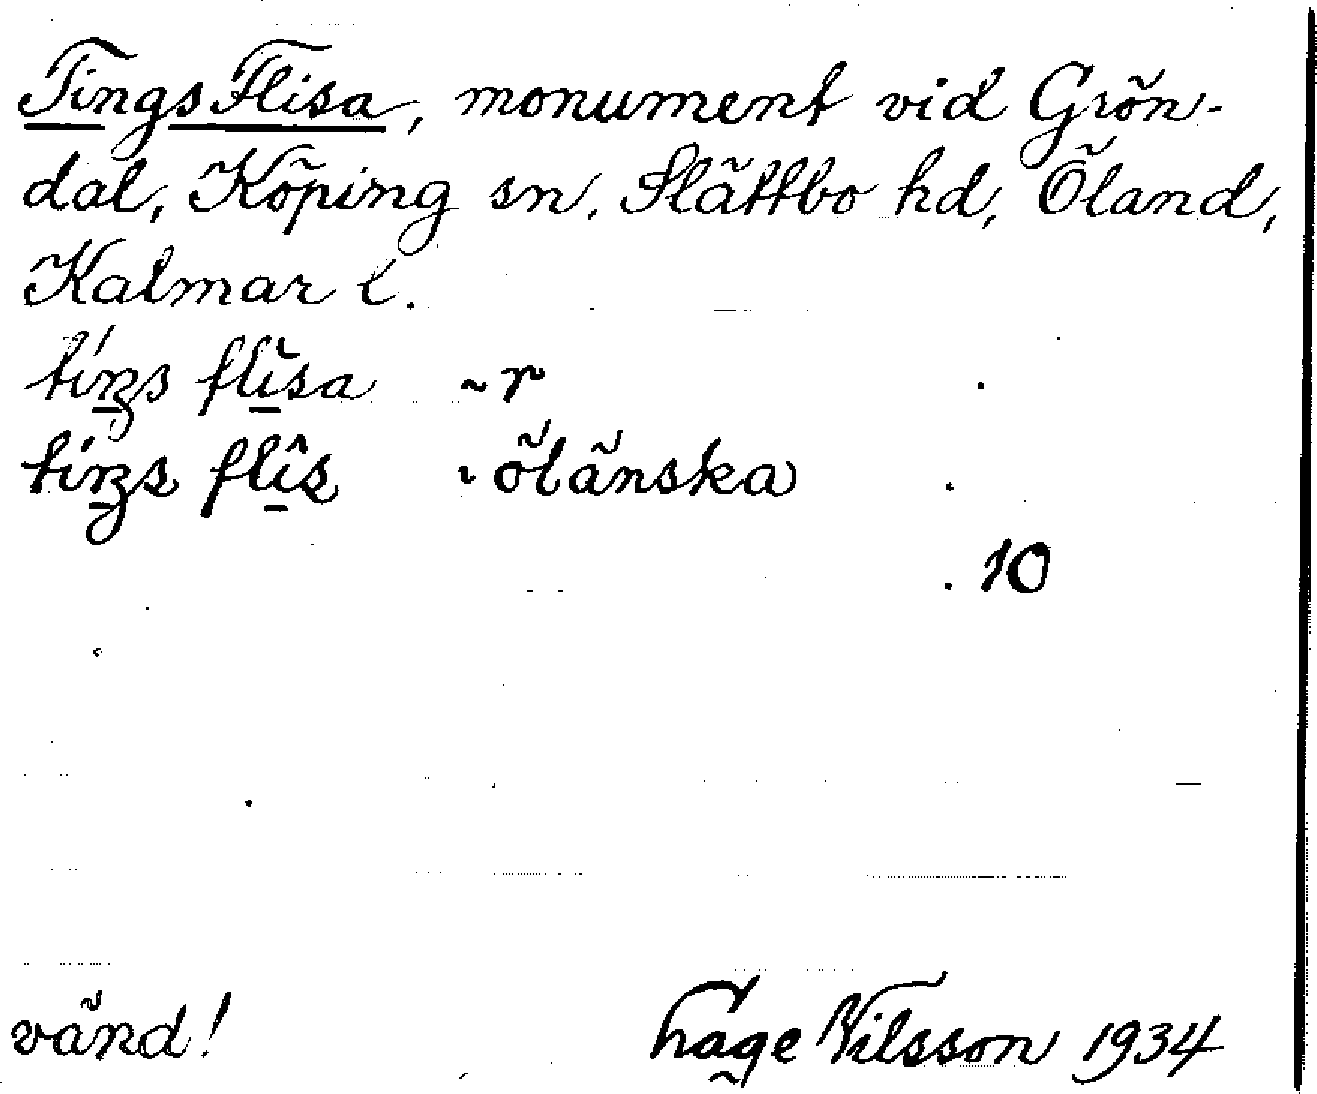 Tings Flisa, monument vid Grön-
dal, Köping sn, Slättbo hd, Öland,
Kalmar l.
tíŋs flìsa ~ r
tíŋs flîs ölänska
10
vänd! Hage Nilsson 1934